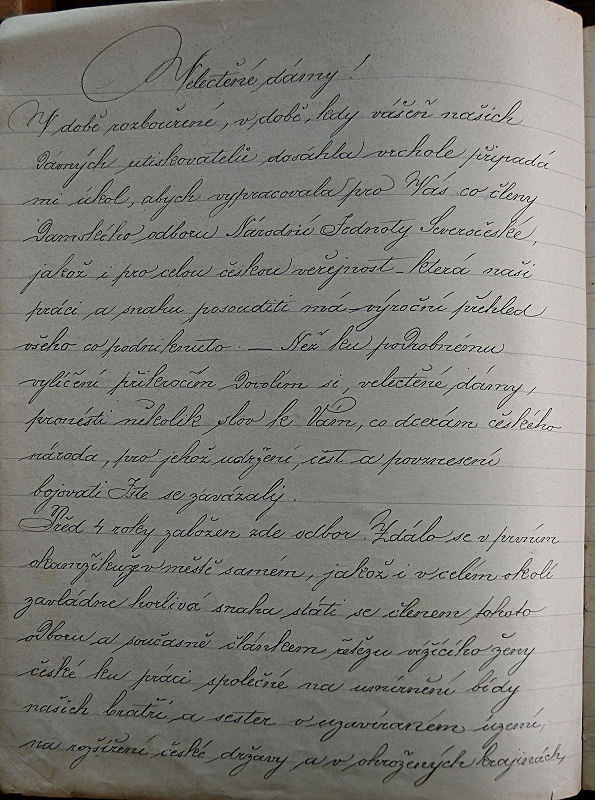 Velectěné dámy!
V době rozbouřené, v době, kdy vášeň našich
dávných utiskovatelů dosáhla vrchole připadá
mi úkol, abych vypracovala pro Vás co členy
Damského odboru Národní Jednoty Severočeské,
jakož i pro celou českou veřejnost – která naši
práci a snahu posouditi má – výroční přehled
všeho co podniknuto. — Než ku podrobnému
vylíčení přikročím dovolím si, velectěné dámy,
pronésti několik slov k Vám, co dcerám českého
národa, pro jehož udržení, čest a povznesení
bojovati Jste se zavázaly.
Před 4 roky založen zde odbor. Zdálo se v prvním
okamžiku že v městě samém, jakož i v celém okolí
zavládne horlivá snaha státi se členem tohoto
odboru a současně článkem řetězu vížícího ženy
české ku práci společné na umírnění bídy
našich bratří a sester v uzavíraném území,
na rozšíření české državy a v ohrožených krajinách,